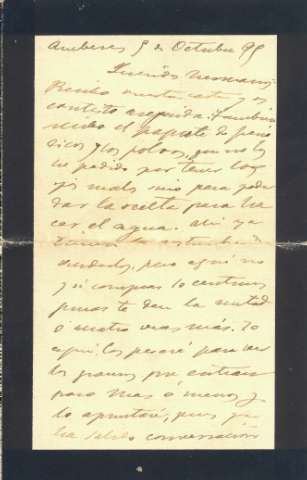 Amberes 5 de Octubre 95
Querido hermano:
Recibo vuestra carta y os
contesto enseguida. También
recibo el paquete de perio
dicos y los polvos, que no los
he pedido por tener los
ojos malos sino para poder
dar la receta para ha
cer el agua. Ahí ya
tienen la costumbre de
venderlos, pero aquí no
y si compras 10 centimos
pues te dan la mitad
o cuatro veces más. Yo
aquí los pesaré para ver
los gramos que entran
poco mas ó menos y
lo apuntaré, pues ya
ha salido conversación